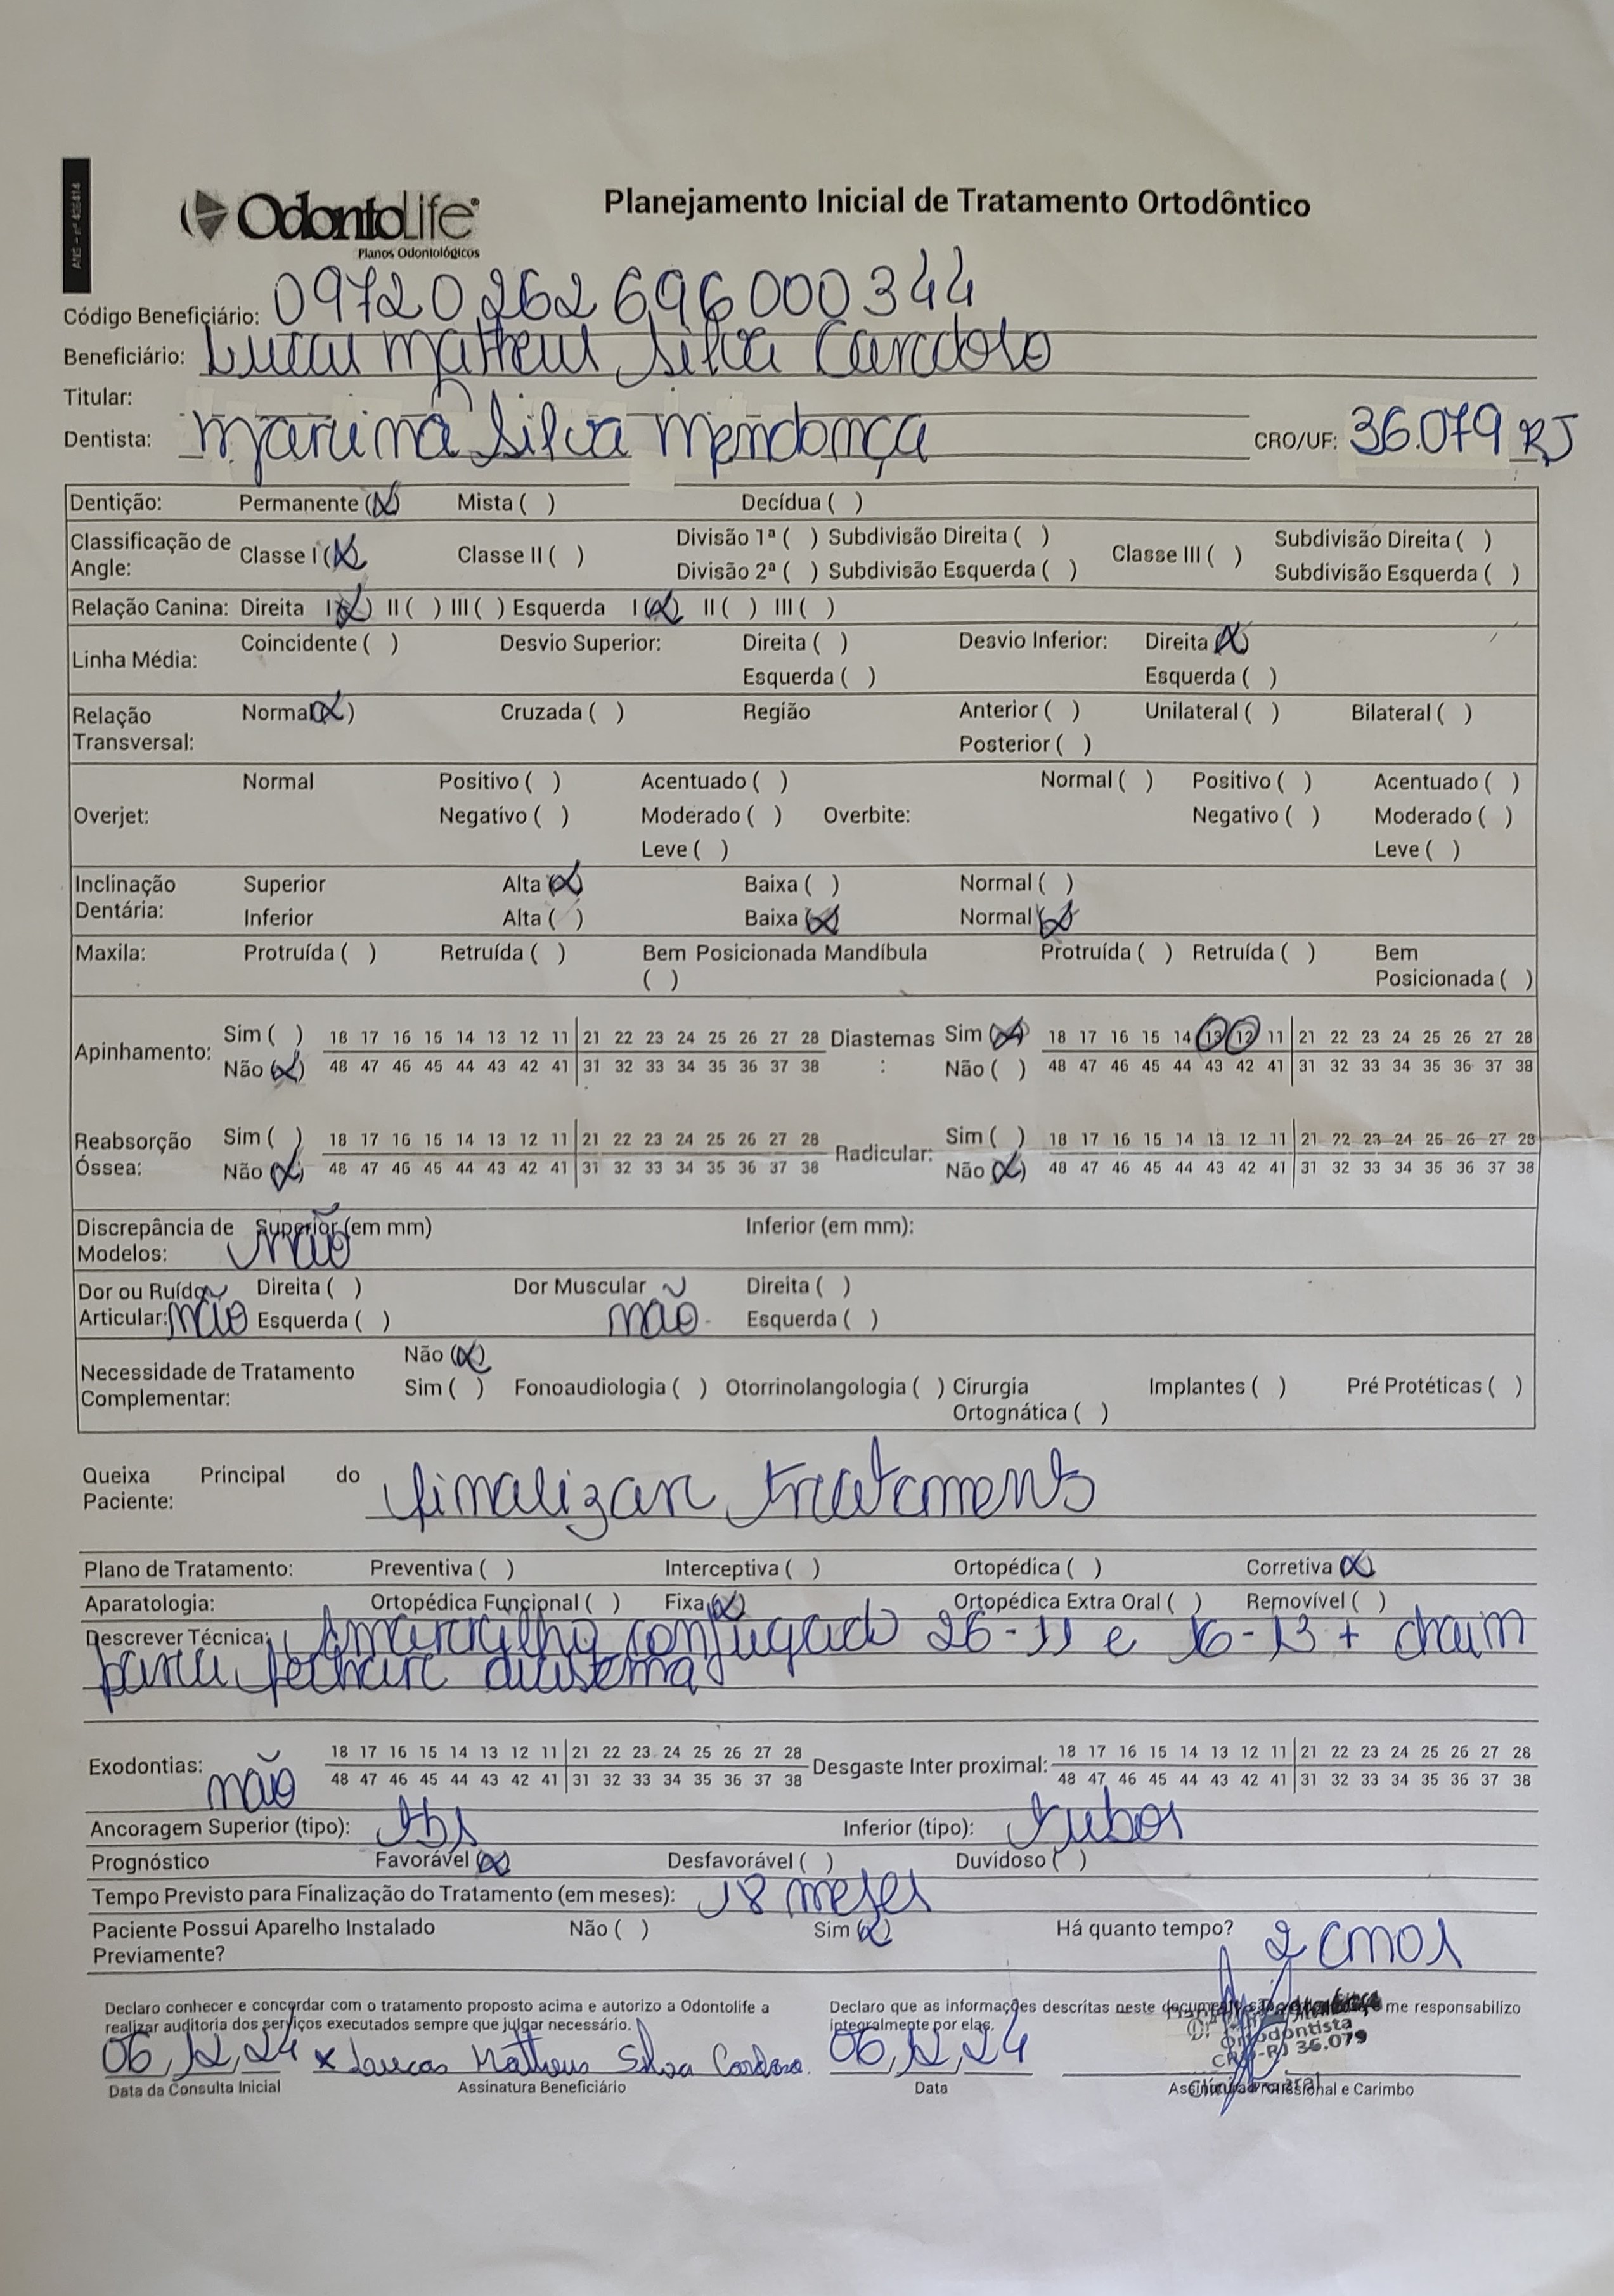 ANS - nº 406414
OdontoLife®
Planos Odontológicos
Planejamento Inicial de Tratamento Ortodôntico
Código Beneficiário: 09720262696000344
Beneficiário: Lucas Matheus Silva Cardoso
Titular:
Dentista: Marina Silva Mendonça CRO/UF: 36.079 RJ
Dentição: Permanente (X) Mista ( ) Decídua ( )
Classificação de Angle: Classe I (X) Classe II ( ) Divisão 1ª ( ) Subdivisão Direita ( ) Classe III ( ) Subdivisão Direita ( )
Divisão 2ª ( ) Subdivisão Esquerda ( ) Subdivisão Esquerda ( )
Relação Canina: Direita I (X) II ( ) III ( ) Esquerda I (X) II ( ) III ( )
Linha Média: Coincidente ( ) Desvio Superior: Direita ( ) Desvio Inferior: Direita (X)
Esquerda ( ) Esquerda ( )
Relação Transversal: Normal (X) Cruzada ( ) Região Anterior ( ) Unilateral ( ) Bilateral ( )
Posterior ( )
Overjet: Normal Positivo ( ) Acentuado ( ) Overbite: Normal ( ) Positivo ( ) Acentuado ( )
Negativo ( ) Moderado ( ) Negativo ( ) Moderado ( )
Leve ( ) Leve ( )
Inclinação Dentária: Superior Alta (X) Baixa ( ) Normal ( )
Inferior Alta ( ) Baixa (X) Normal (X)
Maxila: Protruída ( ) Retruída ( ) Bem Posicionada ( ) Mandíbula Protruída ( ) Retruída ( ) Bem Posicionada ( )
Apinhamento: Sim ( ) 18 17 16 15 14 13 12 11 21 22 23 24 25 26 27 28 Diastemas: Sim (X) 18 17 16 15 14 13 12 11 21 22 23 24 25 26 27 28
Não (X) 48 47 46 45 44 43 42 41 31 32 33 34 35 36 37 38 Não ( ) 48 47 46 45 44 43 42 41 31 32 33 34 35 36 37 38
Reabsorção Óssea: Sim ( ) 18 17 16 15 14 13 12 11 21 22 23 24 25 26 27 28 Radicular: Sim ( ) 18 17 16 15 14 13 12 11 21 22 23 24 25 26 27 28
Não (X) 48 47 46 45 44 43 42 41 31 32 33 34 35 36 37 38 Não (X) 48 47 46 45 44 43 42 41 31 32 33 34 35 36 37 38
Discrepância de Modelos: Superior (em mm) não Inferior (em mm):
Dor ou Ruído Articular: não Direita ( ) Dor Muscular não Direita ( )
Esquerda ( ) Esquerda ( )
Necessidade de Tratamento Complementar: Não (X)
Sim ( ) Fonoaudiologia ( ) Otorrinolangologia ( ) Cirurgia Ortognática ( ) Implantes ( ) Pré Protéticas ( )
Queixa Principal do Paciente: finalizar tratamento
Plano de Tratamento: Preventiva ( ) Interceptiva ( ) Ortopédica ( ) Corretiva (X)
Aparatologia: Ortopédica Funcional ( ) Fixa (X) Ortopédica Extra Oral ( ) Removível ( )
Descrever Técnica: Amarrilho conjugado 26-11 e 16-13 + chain
para fechar diastema
Exodontias: não 18 17 16 15 14 13 12 11 21 22 23 24 25 26 27 28 Desgaste Inter proximal: 18 17 16 15 14 13 12 11 21 22 23 24 25 26 27 28
48 47 46 45 44 43 42 41 31 32 33 34 35 36 37 38 48 47 46 45 44 43 42 41 31 32 33 34 35 36 37 38
Ancoragem Superior (tipo): Inferior (tipo): tubos
Prognóstico Favorável (X) Desfavorável ( ) Duvidoso ( )
Tempo Previsto para Finalização do Tratamento (em meses): 18 meses
Paciente Possui Aparelho Instalado Previamente? Não ( ) Sim (X) Há quanto tempo? 2 anos
Declaro conhecer e concordar com o tratamento proposto acima e autorizo a Odontolife a realizar auditoria dos serviços executados sempre que julgar necessário.
Declaro que as informações descritas neste documento são me responsabilizo integralmente por elas.
06/12/24 x Lucas Matheus Silva Cardoso. 06/12/24
Ortodontista
CRO-RJ 36.079
Data da Consulta Inicial Assinatura Beneficiário Data Assinatura Profissional e Carimbo